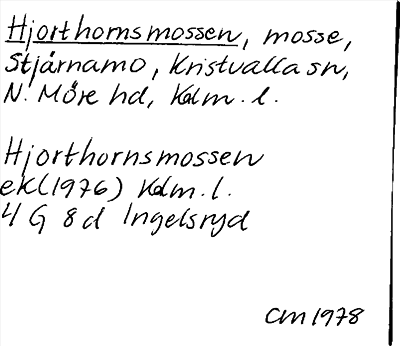 Hjorthornsmossen, mosse,
Stjärnamo, Kristvalla sn,
N. Möre hd, Kalm. l.
Hjorthornsmossen
ek (1976) Kalm. l.
4 G 8 d Ingelsryd
CM 1978